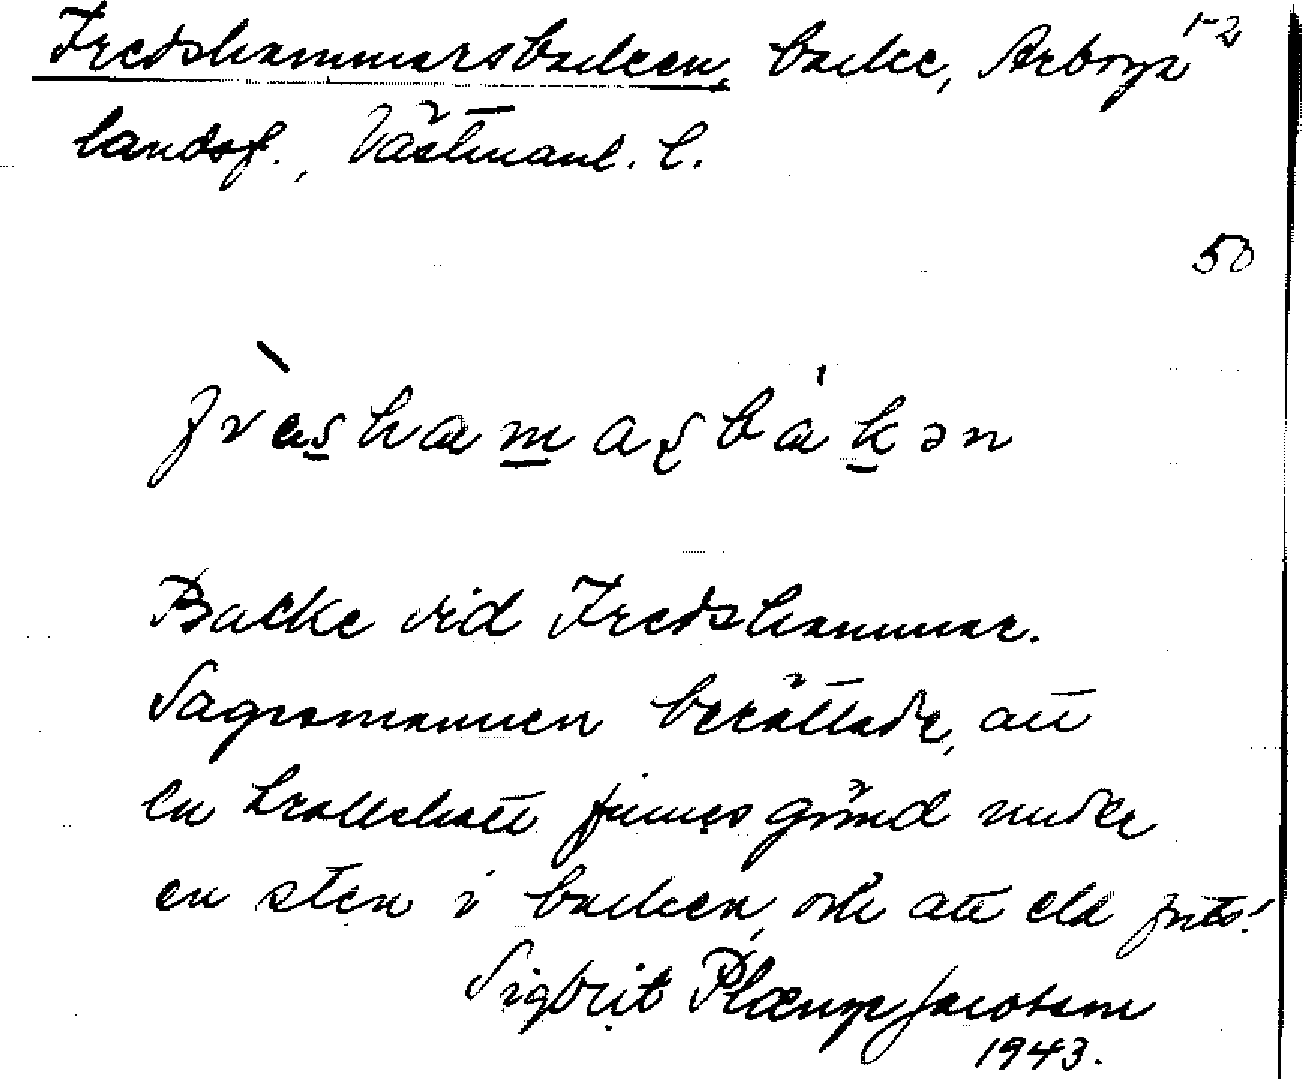 Fredshammarsbacken, backe, Arboga 1-2
landsf., Västmanl. l.
50
frɛ̀shamaʂbákən
Backe vid Fredshammar.
Sagesmannen berättade, att
en trollskatt finnes gömd under
en sten i backen, och att eld
Sigbrit Plænge Jacobson
1943.